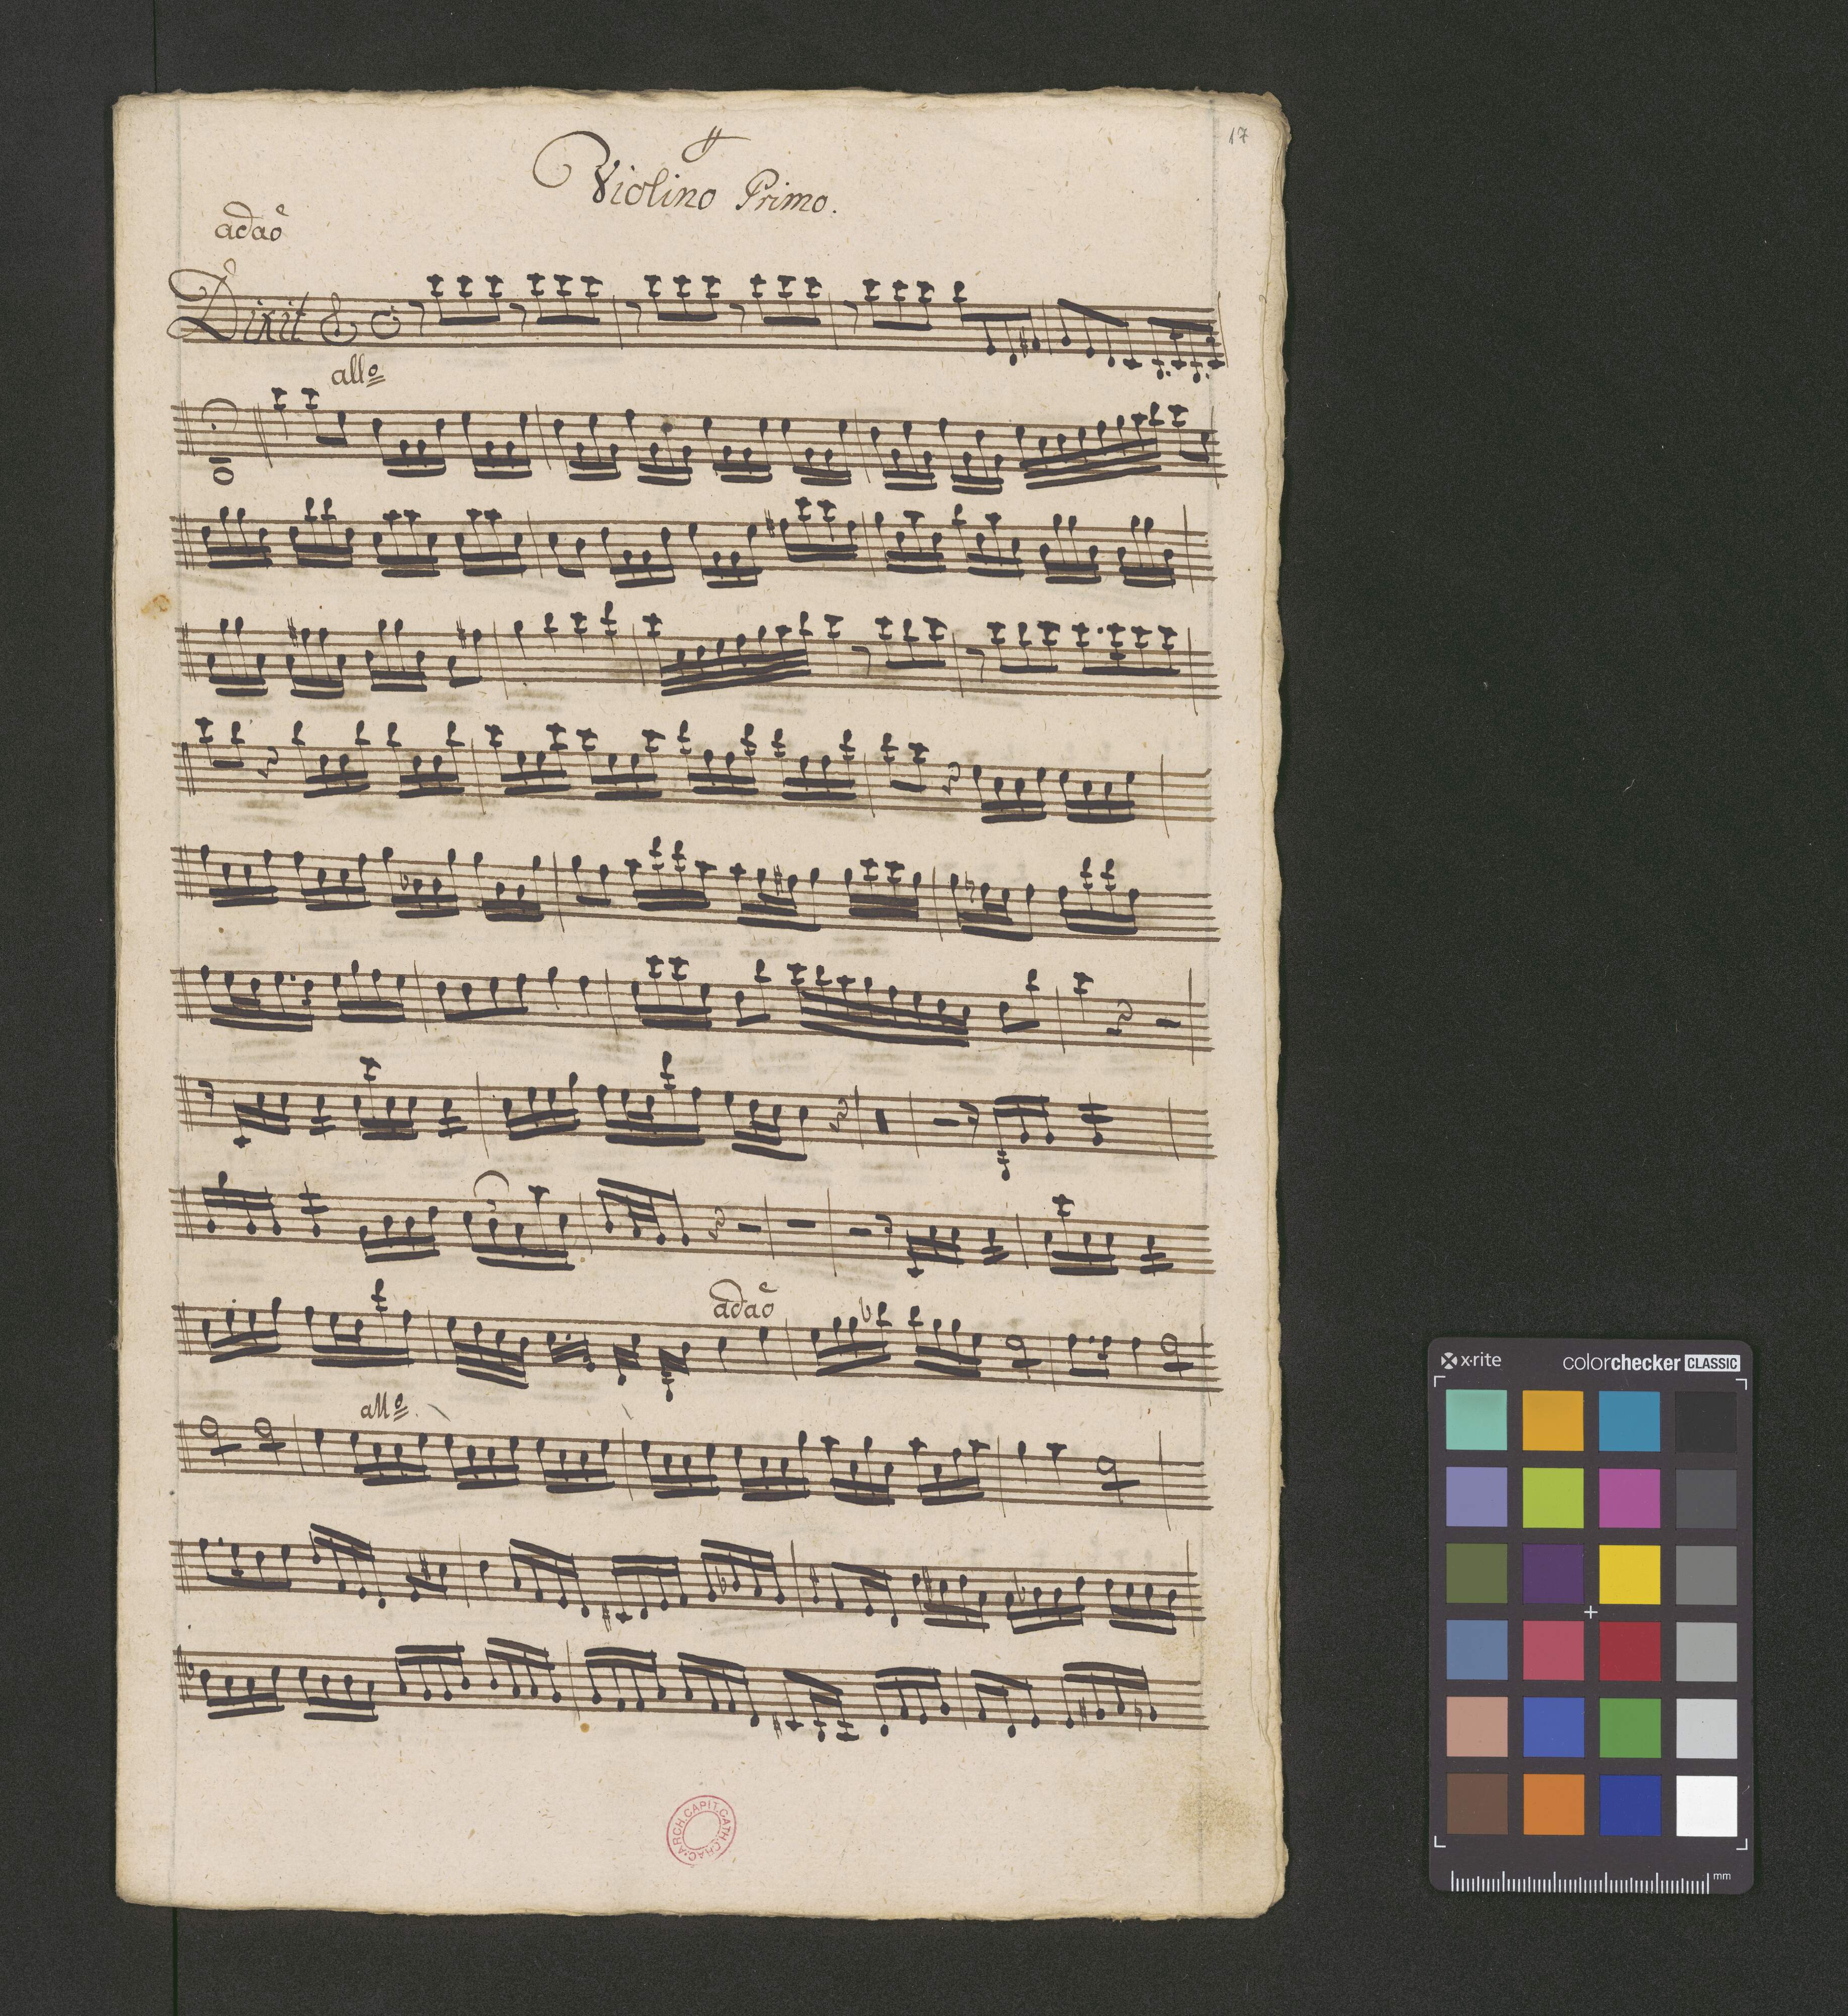 17
Violino Primo.
adaõ
Dixit
allo
adaõ
allo
ARCH.CAPIT.CATH.CRAC.
x-rite
colorchecker CLASSIC
mm